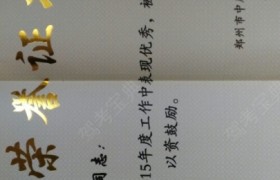 荣誉证
同志：
15年度工作中表现优秀，被
以资鼓励。
郑州市中